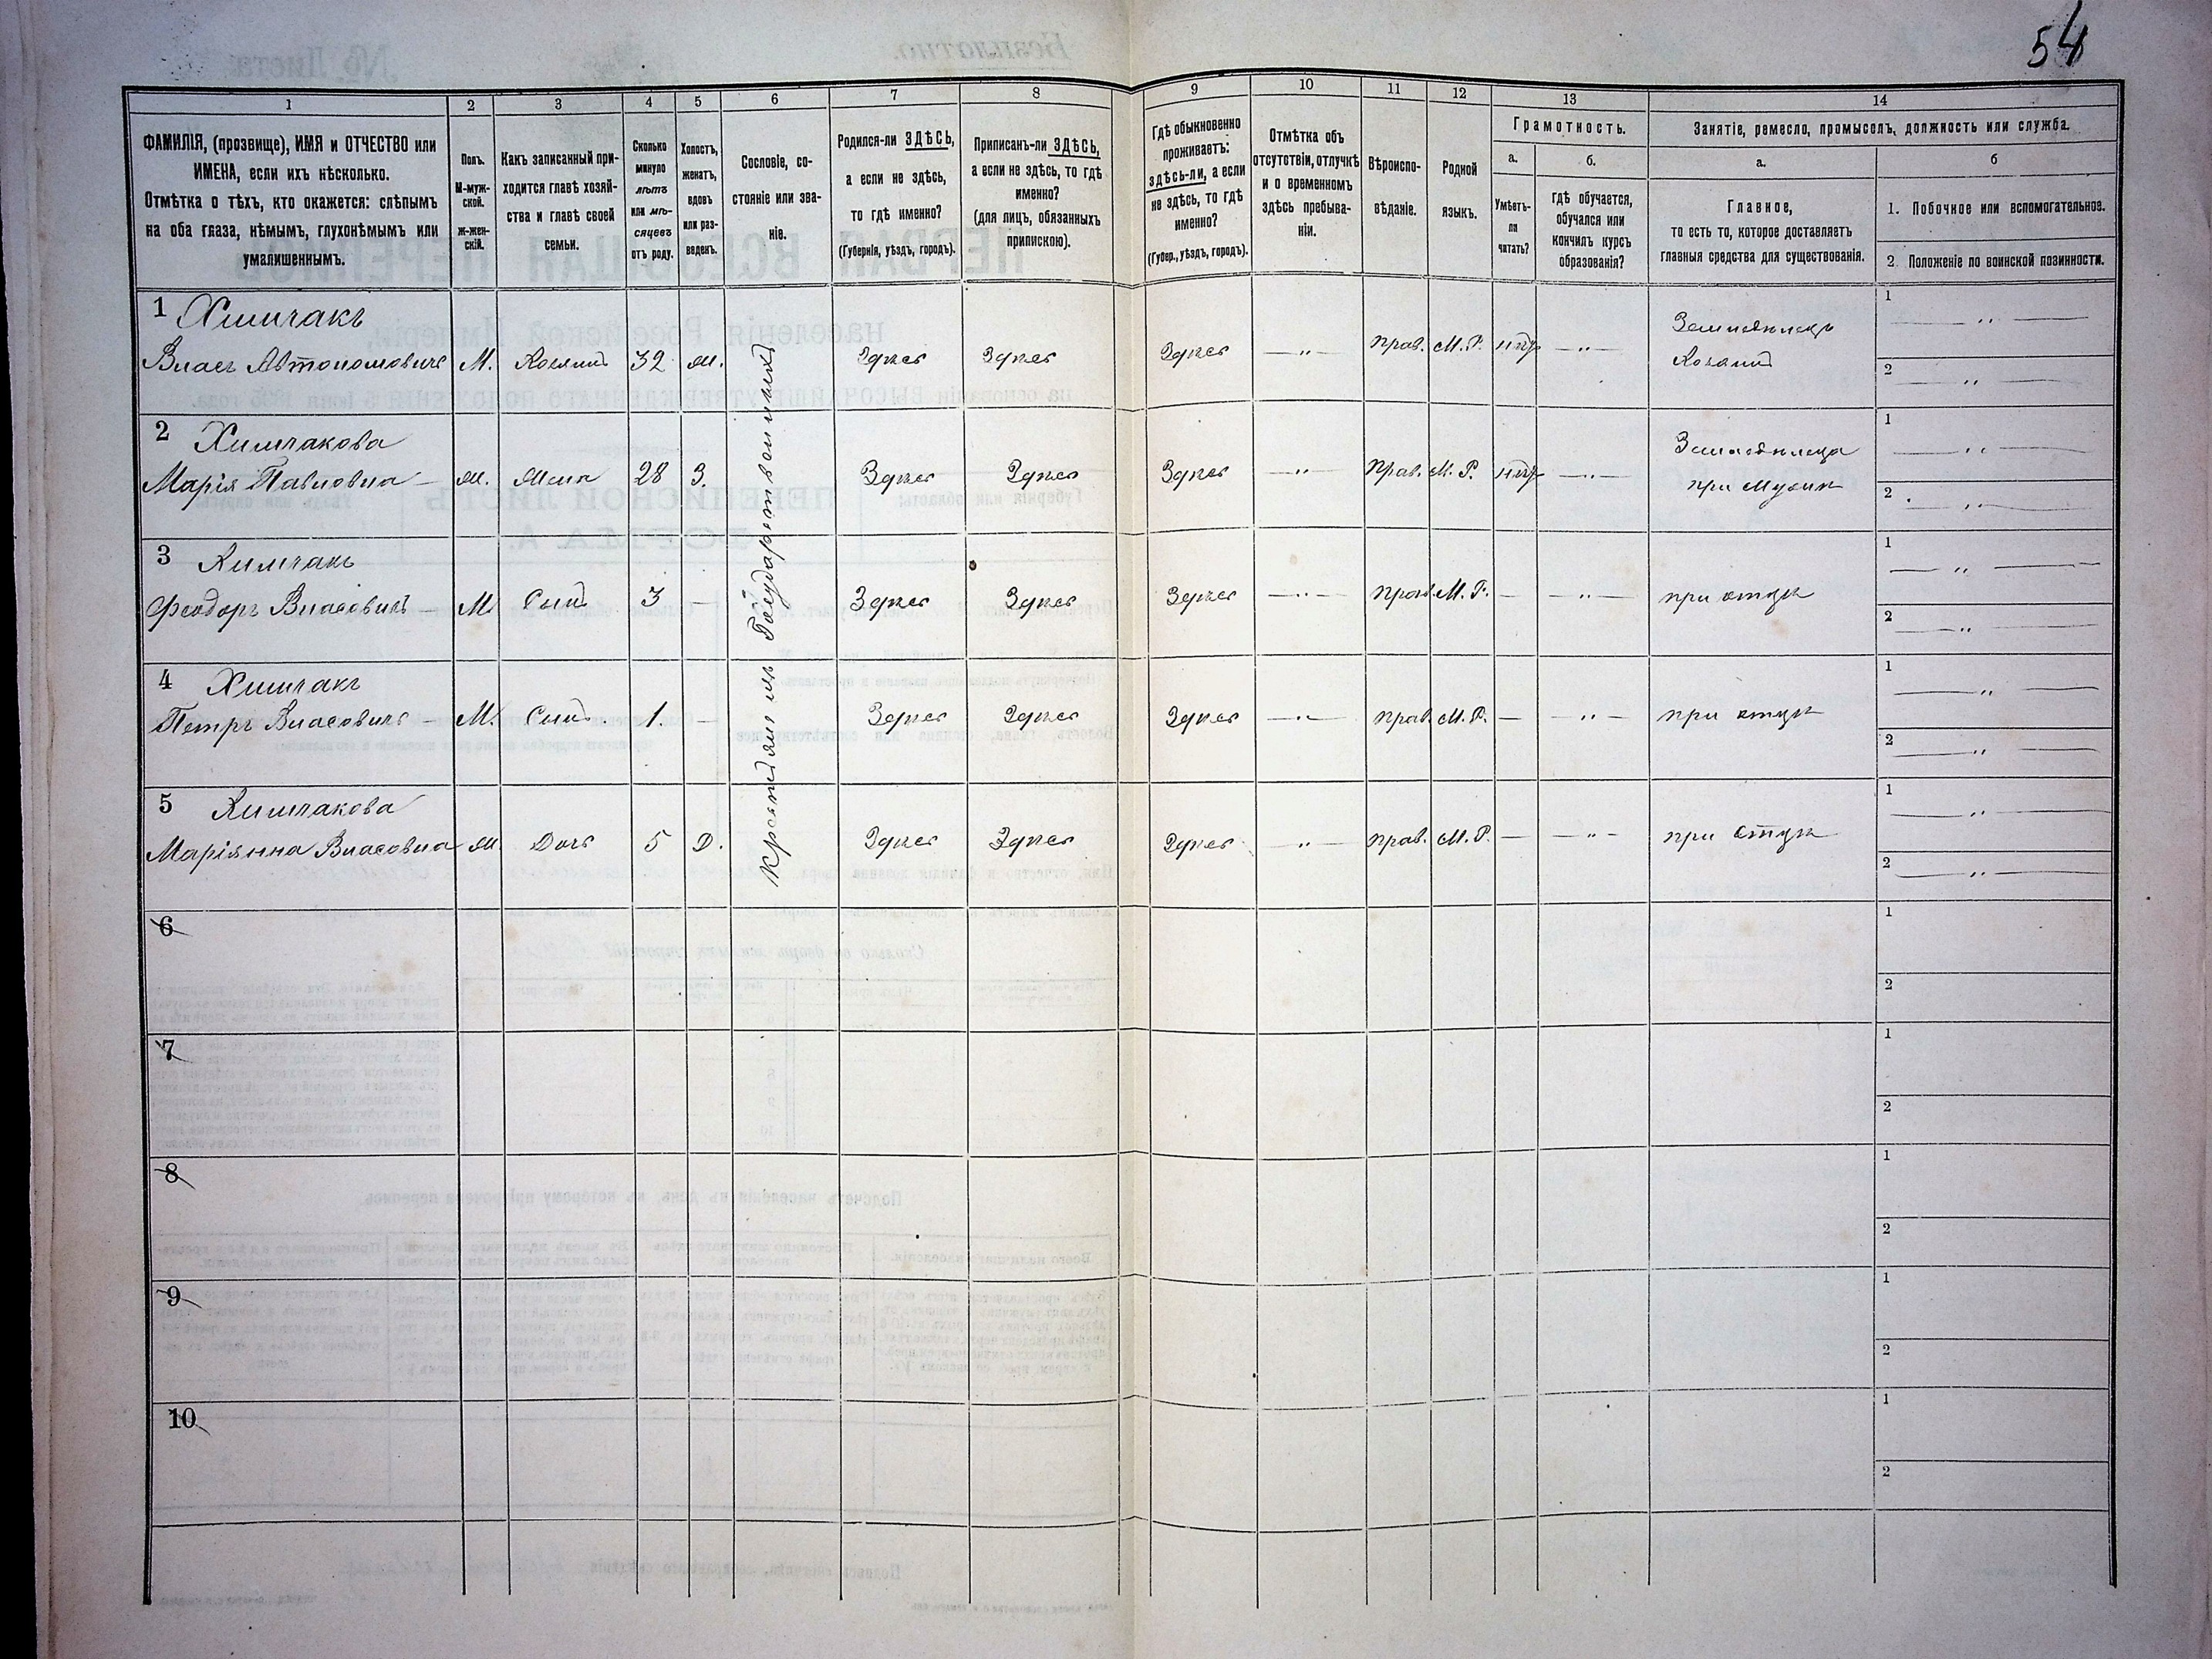 54
1 2 3 4 5 6 7 8 9 10 11 12 13 14
ФАМИЛІЯ, (прозвище), ИМЯ и ОТЧЕСТВО или
ИМЕНА, если ихъ нѣсколько.
Отмѣтка о тѣхъ, кто окажется: слѣпымъ
на оба глаза, нѣмымъ, глухонѣмымъ или
умалишеннымъ.
Полъ.
М-муж-
ской.
ж-жен-
скій.
Какъ записанный при-
ходится главѣ хозяй-
ства и главѣ своей
семьи.
Сколько
минуло
лѣтъ
или мѣ-
сяцевъ
отъ роду.
Холостъ,
женатъ,
вдовъ
или раз-
веденъ.
Сословіе, со-
стояніе или зва-
ніе.
Родился-ли ЗДѢСЬ,
а если не здѣсь,
то гдѣ именно?
(Губернія, уѣздъ, городъ).
Приписанъ-ли ЗДѢСЬ,
а если не здѣсь, то гдѣ
именно?
(для лицъ, обязанныхъ
припискою).
Гдѣ обыкновенно
проживаетъ:
здѣсь-ли, а если
не здѣсь, то гдѣ
именно?
(Губер., уѣздъ, городъ).
Отмѣтка объ
отсутствіи, отлучкѣ
и о временномъ
здѣсь пребыва-
ніи.
Вѣроиспо-
вѣданіе.
Родной
языкъ.
Грамотность.
а.
Умѣетъ-
ли
читать?
б.
Гдѣ обучается,
обучался или
кончилъ курсъ
образованія?
Занятіе, ремесло, промыселъ, должность или служба.
а.
Главное,
то есть то, которое доставляетъ
главныя средства для существованія.
б
1. Побочное или вспомогательное.
2. Положеніе по воинской повинности.
Крестьянинъ Государственный
1 Химчакъ
Власъ Автономовичъ М. Хозяинъ 32 ж. Здѣсь Здѣсь Здѣсь — " — Прав. М. Р. нѣтъ — " —
Земледѣлецъ
Хозяинъ
1 — " —
2 — " —
2 Химчакова
Марія Павловна — ж. Жена 28 З. Здѣсь Здѣсь Здѣсь — " — Прав. М. Р. нѣтъ — " —
Земледѣлица
при мужѣ
1 — " —
2 — " —
3 Химчакъ
Феодоръ Власовичъ — М Сынъ 3 — Здѣсь Здѣсь Здѣсь — " — Прав. М. Р. — — " — при отцѣ
1 — " —
2 — " —
4 Химчакъ
Петръ Власовичъ — М. Сынъ. 1. — Здѣсь Здѣсь Здѣсь — " — Прав. М. Р. — — " — при отцѣ
1 — " —
2 — " —
5 Химчакова
Маріянна Власовна ж Дочь 5 Д. Здѣсь Здѣсь Здѣсь — " — Прав. М. Р. — — " — при отцѣ
1 — " —
2 — " —
6
1
2
7
1
2
8
1
2
9
1
2
10
1
2